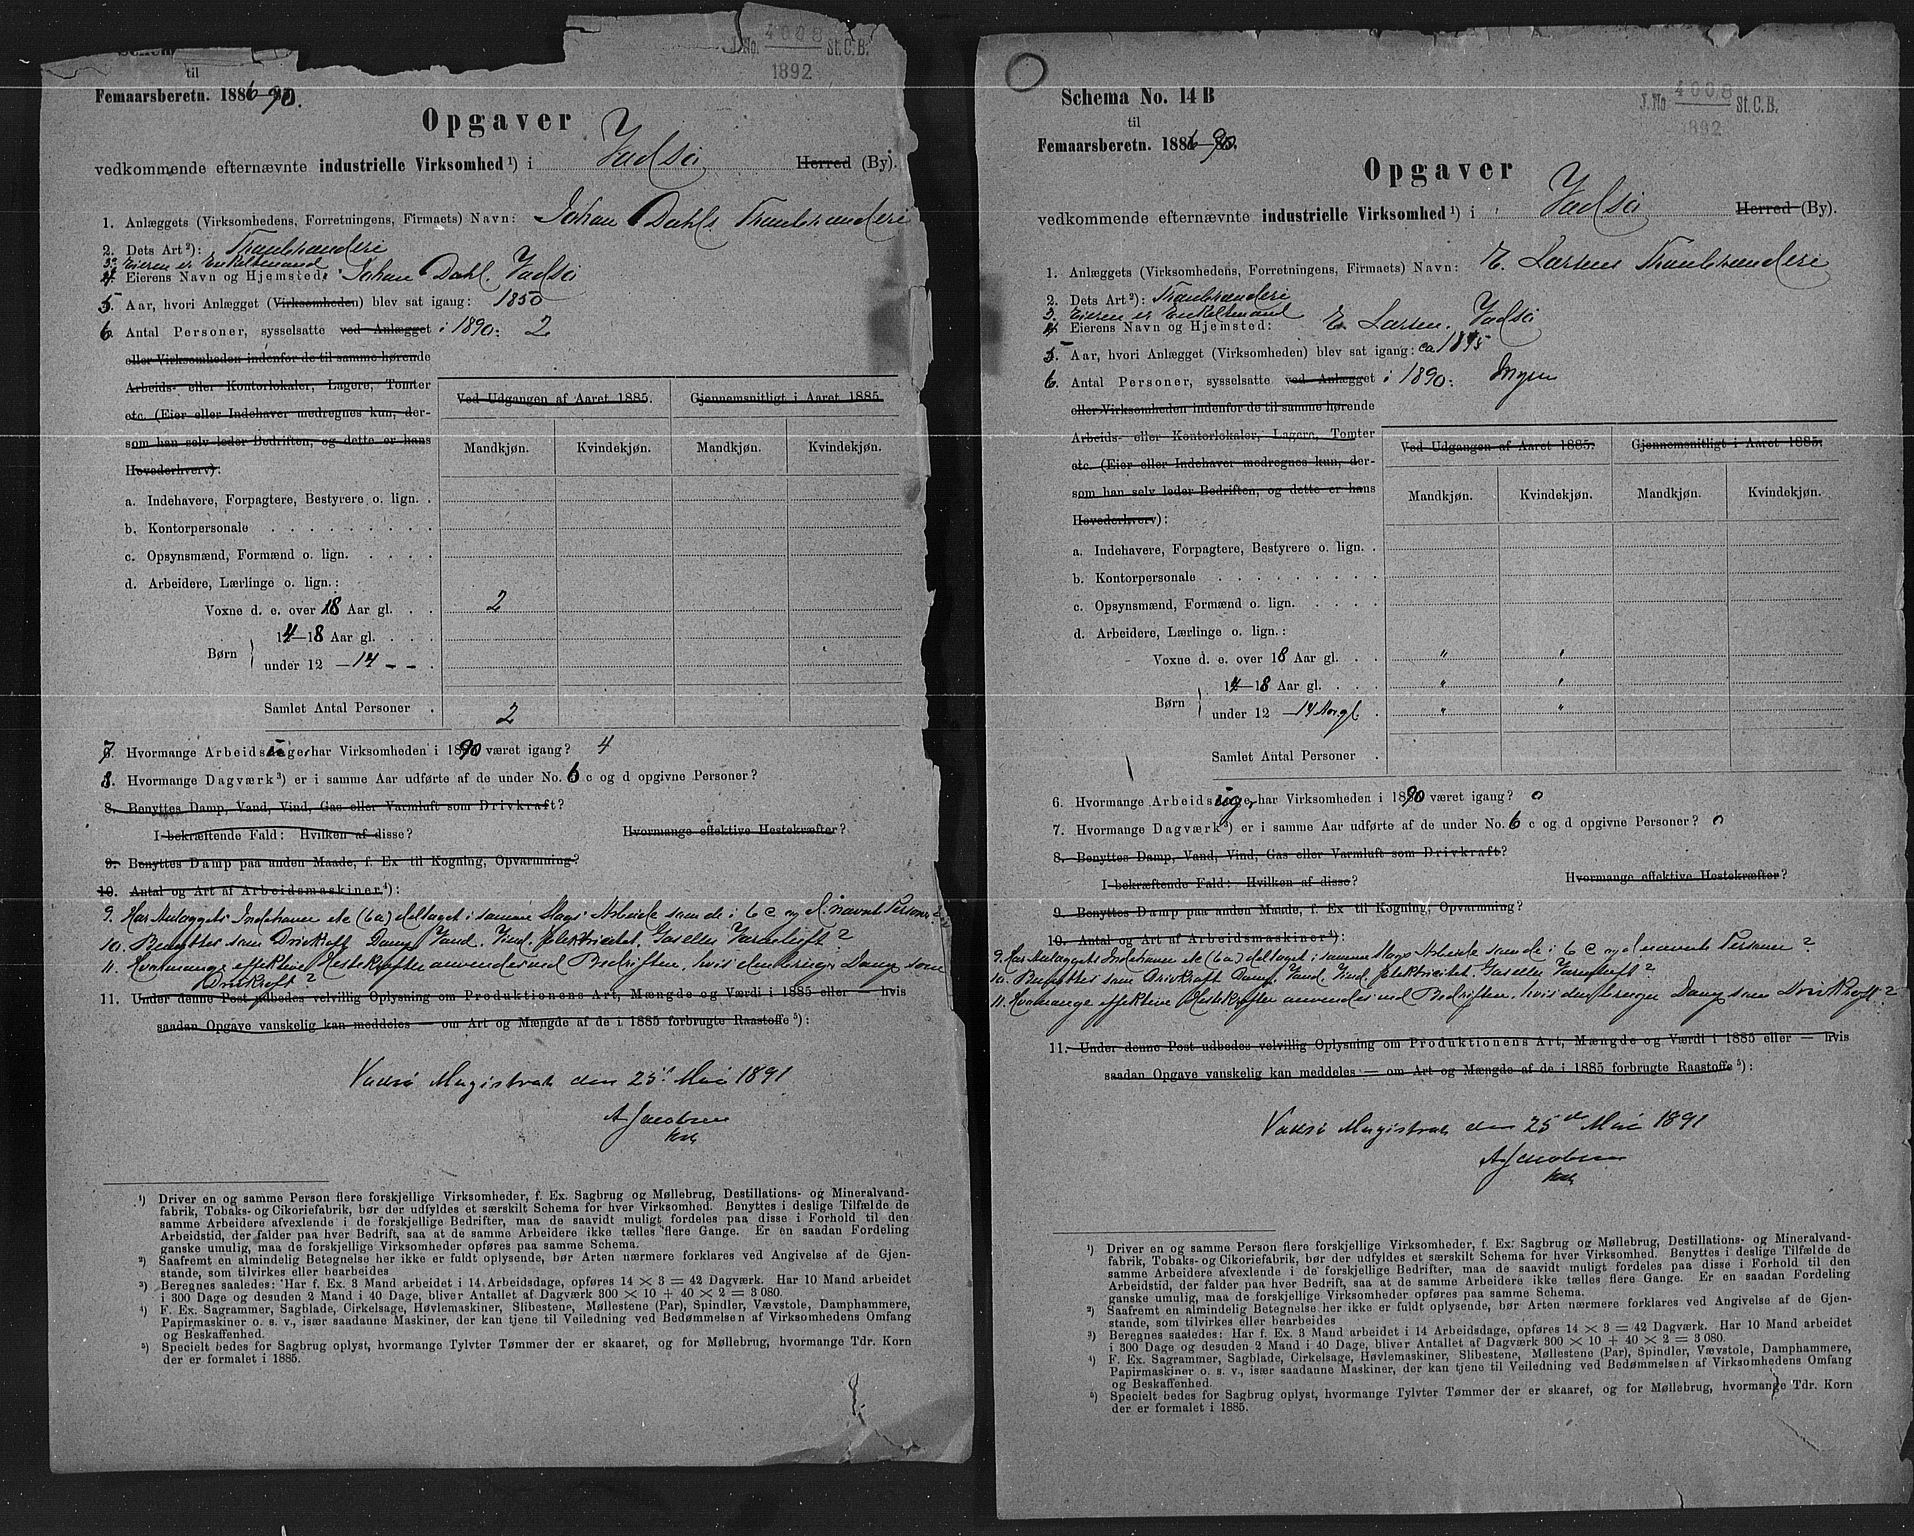 J. No. 4008 St. C. B.
1892
til
Femaarsberetn. 1886–90.
Opgaver
vedkommende efternævnte industrielle Virksomhed ¹) i Vadsö Herred (By).
1. Anlæggets (Virksomhedens, Forretningens, Firmaets) Navn: Johan Dahls Tranbrænderi
2. Dets Art ²): Tranbrænderi
3. Eieren er Enkeltmand
4. Eierens Navn og Hjemsted: Johan Dahl. Vadsö
5. Aar, hvori Anlægget (Virksomheden) blev sat igang: 1850
6. Antal Personer, sysselsatte ved Anlægget i 1890: 2
eller Virksomheden indenfor de til samme hørende
Arbeids- eller Kontorlokaler, Lagere, Tomter
etc. (Eier eller Indehaver medregnes kun, der-
som han selv leder Bedriften, og dette er hans
Hovederhverv):
Ved Udgangen af Aaret 1885. Gjennemsnitligt i Aaret 1885.
Mandkjøn. Kvindekjøn. Mandkjøn. Kvindekjøn.
a. Indehavere, Forpagtere, Bestyrere o. lign. .
b. Kontorpersonale . . . . . . . . .
c. Opsynsmænd, Formænd o. lign. . . . .
d. Arbeidere, Lærlinge o. lign.:
Voxne d. e. over 18 Aar gl. . . 2
14–18 Aar gl. . . .
Børn
under 12 –14 – –
Samlet Antal Personer . 2
7. Hvormange Arbeidsuger har Virksomheden i 1890 været igang? 4
8. Hvormange Dagværk ³) er i samme Aar udførte af de under No. 6 c og d opgivne Personer?
8. Benyttes Damp, Vand, Vind, Gas eller Varmluft som Drivkraft?
I bekræftende Fald: Hvilken af disse? Hvormange effektive Hestekræfter?
9. Benyttes Damp paa anden Maade, f. Ex til Kogning, Opvarmning?
10. Antal og Art af Arbeidsmaskiner ⁴):
9. Har Anlæggets Indehaver etc (6a) deltaget i samme Slags Arbeide som de i 6 c og d. nævnte Personer?
10. Benyttes som Drivkraft Damp, Vand, Vind, Elektricitet, Gas eller Varmluft?
11. Hvormange effektive Hestekræfter anvendes ved Bedriften, hvis den bruger Damp som
Drivkraft?
11. Under denne Post udbedes velvillig Oplysning om Produktionens Art, Mængde og Værdi i 1885 eller — hvis
saadan Opgave vanskelig kan meddeles — om Art og Mængde af de i 1885 forbrugte Raastoffe ⁵):
Vadsö Magistrat den 25d Mai 1891
A Jacobsen
¹) Driver en og samme Person flere forskjellige Virksomheder, f. Ex. Sagbrug og Møllebrug, Destillations- og Mineralvand-
fabrik, Tobaks- og Cikoriefabrik, bør der udfyldes et særskilt Schema for hver Virksomhed. Benyttes i deslige Tilfælde de
samme Arbeidere afvexlende i de forskjellige Bedrifter, maa de saavidt muligt fordeles paa disse i Forhold til den
Arbeidstid, der falder paa hver Bedrift, saa at de samme Arbeidere ikke tælles flere Gange. Er en saadan Fordeling
ganske umulig, maa de forskjellige Virksomheder opføres paa samme Schema.
²) Saafremt en almindelig Betegnelse her ikke er fuldt oplysende, bør Arten nærmere forklares ved Angivelse af de Gjen-
stande, som tilvirkes eller bearbeides
³) Beregnes saaledes: Har f. Ex. 3 Mand arbeidet i 14 Arbeidsdage, opføres 14 × 3 = 42 Dagværk. Har 10 Mand arbeidet
i 300 Dage og desuden 2 Mand i 40 Dage, bliver Antallet af Dagværk 300 × 10 + 40 × 2 = 3 080.
⁴) F. Ex. Sagrammer, Sagblade, Cirkelsage, Høvlemaskiner, Slibestene, Møllestene (Par), Spindler, Vævstole, Damphammere,
Papirmaskiner o. s. v., især saadanne Maskiner, der kan tjene til Veiledning ved Bedømmelsen af Virksomhedens Omfang
og Beskaffenhed.
⁵) Specielt bedes for Sagbrug oplyst, hvormange Tylvter Tømmer der er skaaret, og for Møllebrug, hvormange Tdr. Korn
der er formalet i 1885.
Schema No. 14 B
J. No 4008 St. C. B.
1892
til
Femaarsberetn. 1886–90.
Opgaver
vedkommende efternævnte industrielle Virksomhed ¹) i Vadsö Herred (By).
1. Anlæggets (Virksomhedens, Forretningens, Firmaets) Navn: E. Larsens Tranbrænderi
2. Dets Art ²): Tranbrænderi
3. Eieren er Enkeltmand
4. Eierens Navn og Hjemsted: E. Larsen. Vadsö
5. Aar, hvori Anlægget (Virksomheden) blev sat igang: ca 1875
6. Antal Personer, sysselsatte ved Anlægget i 1890: Ingen
eller Virksomheden indenfor de til samme hørende
Arbeids- eller Kontorlokaler, Lagere, Tomter
etc. (Eier eller Indehaver medregnes kun, der-
som han selv leder Bedriften, og dette er hans
Hovederhverv):
Ved Udgangen af Aaret 1885. Gjennemsnitligt i Aaret 1885.
Mandkjøn. Kvindekjøn. Mandkjøn. Kvindekjøn.
a. Indehavere, Forpagtere, Bestyrere o. lign. .
b. Kontorpersonale . . . . . . . . .
c. Opsynsmænd, Formænd o. lign. . . . .
d. Arbeidere, Lærlinge o. lign.:
Voxne d. e. over 18 Aar gl. . . " "
14–18 Aar gl. . . . " "
Børn
under 12 –14 Aar gl. " "
Samlet Antal Personer .
6. Hvormange Arbeidsuger har Virksomheden i 1890 været igang? 0
7. Hvormange Dagværk ³) er i samme Aar udførte af de under No. 6 c og d opgivne Personer? 0
8. Benyttes Damp, Vand, Vind, Gas eller Varmluft som Drivkraft?
I bekræftende Fald: Hvilken af disse? Hvormange effektive Hestekræfter?
9. Benyttes Damp paa anden Maade, f. Ex til Kogning, Opvarmning?
10. Antal og Art af Arbeidsmaskiner ⁴):
9. Har Anlæggets Indehaver etc (6a) deltaget i samme Slags Arbeide som de i 6 c og d nævnte Personer?
10. Benyttes som Drivkraft Damp, Vand, Vind, Elektricitet, Gas eller Varmluft?
11. Hvormange effektive Hestekræfter anvendes ved Bedriften, hvis den bruger Damp som Drivkraft?
11. Under denne Post udbedes velvillig Oplysning om Produktionens Art, Mængde og Værdi i 1885 eller — hvis
saadan Opgave vanskelig kan meddeles — om Art og Mængde af de i 1885 forbrugte Raastoffe ⁵):
Vadsö Magistrat den 25d Mai 1891
A Jacobsen
¹) Driver en og samme Person flere forskjellige Virksomheder, f. Ex: Sagbrug og Møllebrug, Destillations- og Mineralvand-
fabrik, Tobaks- og Cikoriefabrik, bør der udfyldes et særskilt Schema for hver Virksomhed. Benyttes i deslige Tilfælde de
samme Arbeidere afvexlende i de forskjellige Bedrifter, maa de saavidt muligt fordeles paa disse i Forhold til den
Arbeidstid, der falder paa hver Bedrift, saa at de samme Arbeidere ikke tælles flere Gange. Er en saadan Fordeling
ganske umulig, maa de forskjellige Virksomheder opføres paa samme Schema.
²) Saafremt en almindelig Betegnelse her ikke er fuldt oplysende, bør Arten nærmere forklares ved Angivelse af de Gjen-
stande, som tilvirkes eller bearbeides
³) Beregnes saaledes: Har f. Ex. 3 Mand arbeidet i 14 Arbeidsdage, opføres 14 × 3 = 42 Dagværk. Har 10 Mand arbeidet
i 300 Dage og desuden 2 Mand i 40 Dage, bliver Antallet af Dagværk 300 × 10 + 40 × 2 = 3 080.
⁴) F. Ex. Sagrammer, Sagblade, Cirkelsage, Høvlemaskiner, Slibestene, Møllestene (Par), Spindler, Vævstole, Damphammere,
Papirmaskiner o. s. v., især saadanne Maskiner, der kan tjene til Veiledning ved Bedømmelsen af Virksomhedens Omfang
og Beskaffenhed.
⁵) Specielt bedes for Sagbrug oplyst, hvormange Tylvter Tømmer der er skaaret, og for Møllebrug, hvormange Tdr. Korn
der er formalet i 1885.